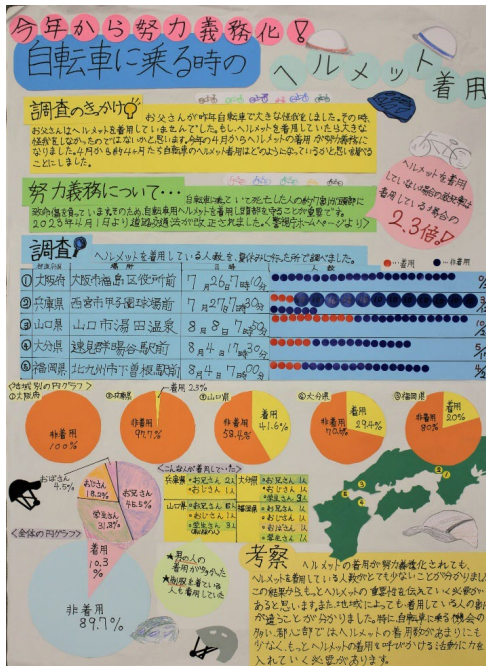 今年から努力義務化!
自転車に乗る時の
ヘルメット着用
調査のきっかけ
お父さんが昨年自転車で大きな怪我をしました。その時、
お父さんはヘルメットを着用していませんでした。もし、ヘルメットを着用していたら大きな
怪我をしなかったのではないかと思います。今年の4月からヘルメットの着用が努力義務に
なりました。4月から約4ヶ月たち自転車のヘルメット着用はどのようになっているかと思い調べる
ことにしました。
ヘルメットを着用
していない場合の致死率は
着用している場合の
2.3倍!
努力義務について・・・
自転車に乗っていて死亡した人の約7割が頭部に
致命傷を負っています。そのため、自転車用ヘルメットを着用し頭部を守ることが重要です。
2023年4月1日より道路交通法が改正されました。<警視庁ホームページより>
調査
ヘルメットを着用している人数を、夏休みに行った所で調べました。
●…着用 ●…非着用
場所 日時 人数
①大阪府 大阪市福島区役所前 7月26日7時10分
②兵庫県 西宮市甲子園球場前 7月27日7時30分
③山口県 山口市湯田温泉 8月8日7時50分
④大分県 速見群暘谷駅前 8月4日17時30分
⑤福岡県 北九州市下曽根駅前 8月4日7時00分
<地域別の円グラフ>
①大阪府
非着用
100%
②兵庫県
着用 2.3%
非着用
97.7%
③山口県
着用
41.6%
非着用
58.4%
④大分県
着用
29.4%
非着用
70.6%
⑤福岡県
着用
20%
非着用
80%
おばさん
4.5%
おじさん
18.2%
お兄さん
45.5%
学生さん
31.8%
<こんな人が着用していた>
兵庫県
・お兄さん 2人
・おじさん 1人
大分県
・お兄さん 1人
・おじさん 1人
・学生さん 3人
山口県
・おじさん 1人
・学生さん
福岡県
・お兄さん 1人
<全体の円グラフ>
着用
10.3
%
非着用
89.7%
★男の人の
着用が多かった
★制服を着ている
人も着用していた
考察
ヘルメットの着用が努力義務化されても、
ヘルメットを着用している人数がとても少ないことが分かりました。
この結果からもっとヘルメットの重要性を伝えていく必要が
あると思います。また、地域によっても、着用している人の割
が違うことが分かりました。特に、自転車に乗る機会の
多い都心部ではヘルメットの着用数があまりにも
少なく、もっとヘルメットの着用を呼びかける活動に力を
入れていく必要があります。